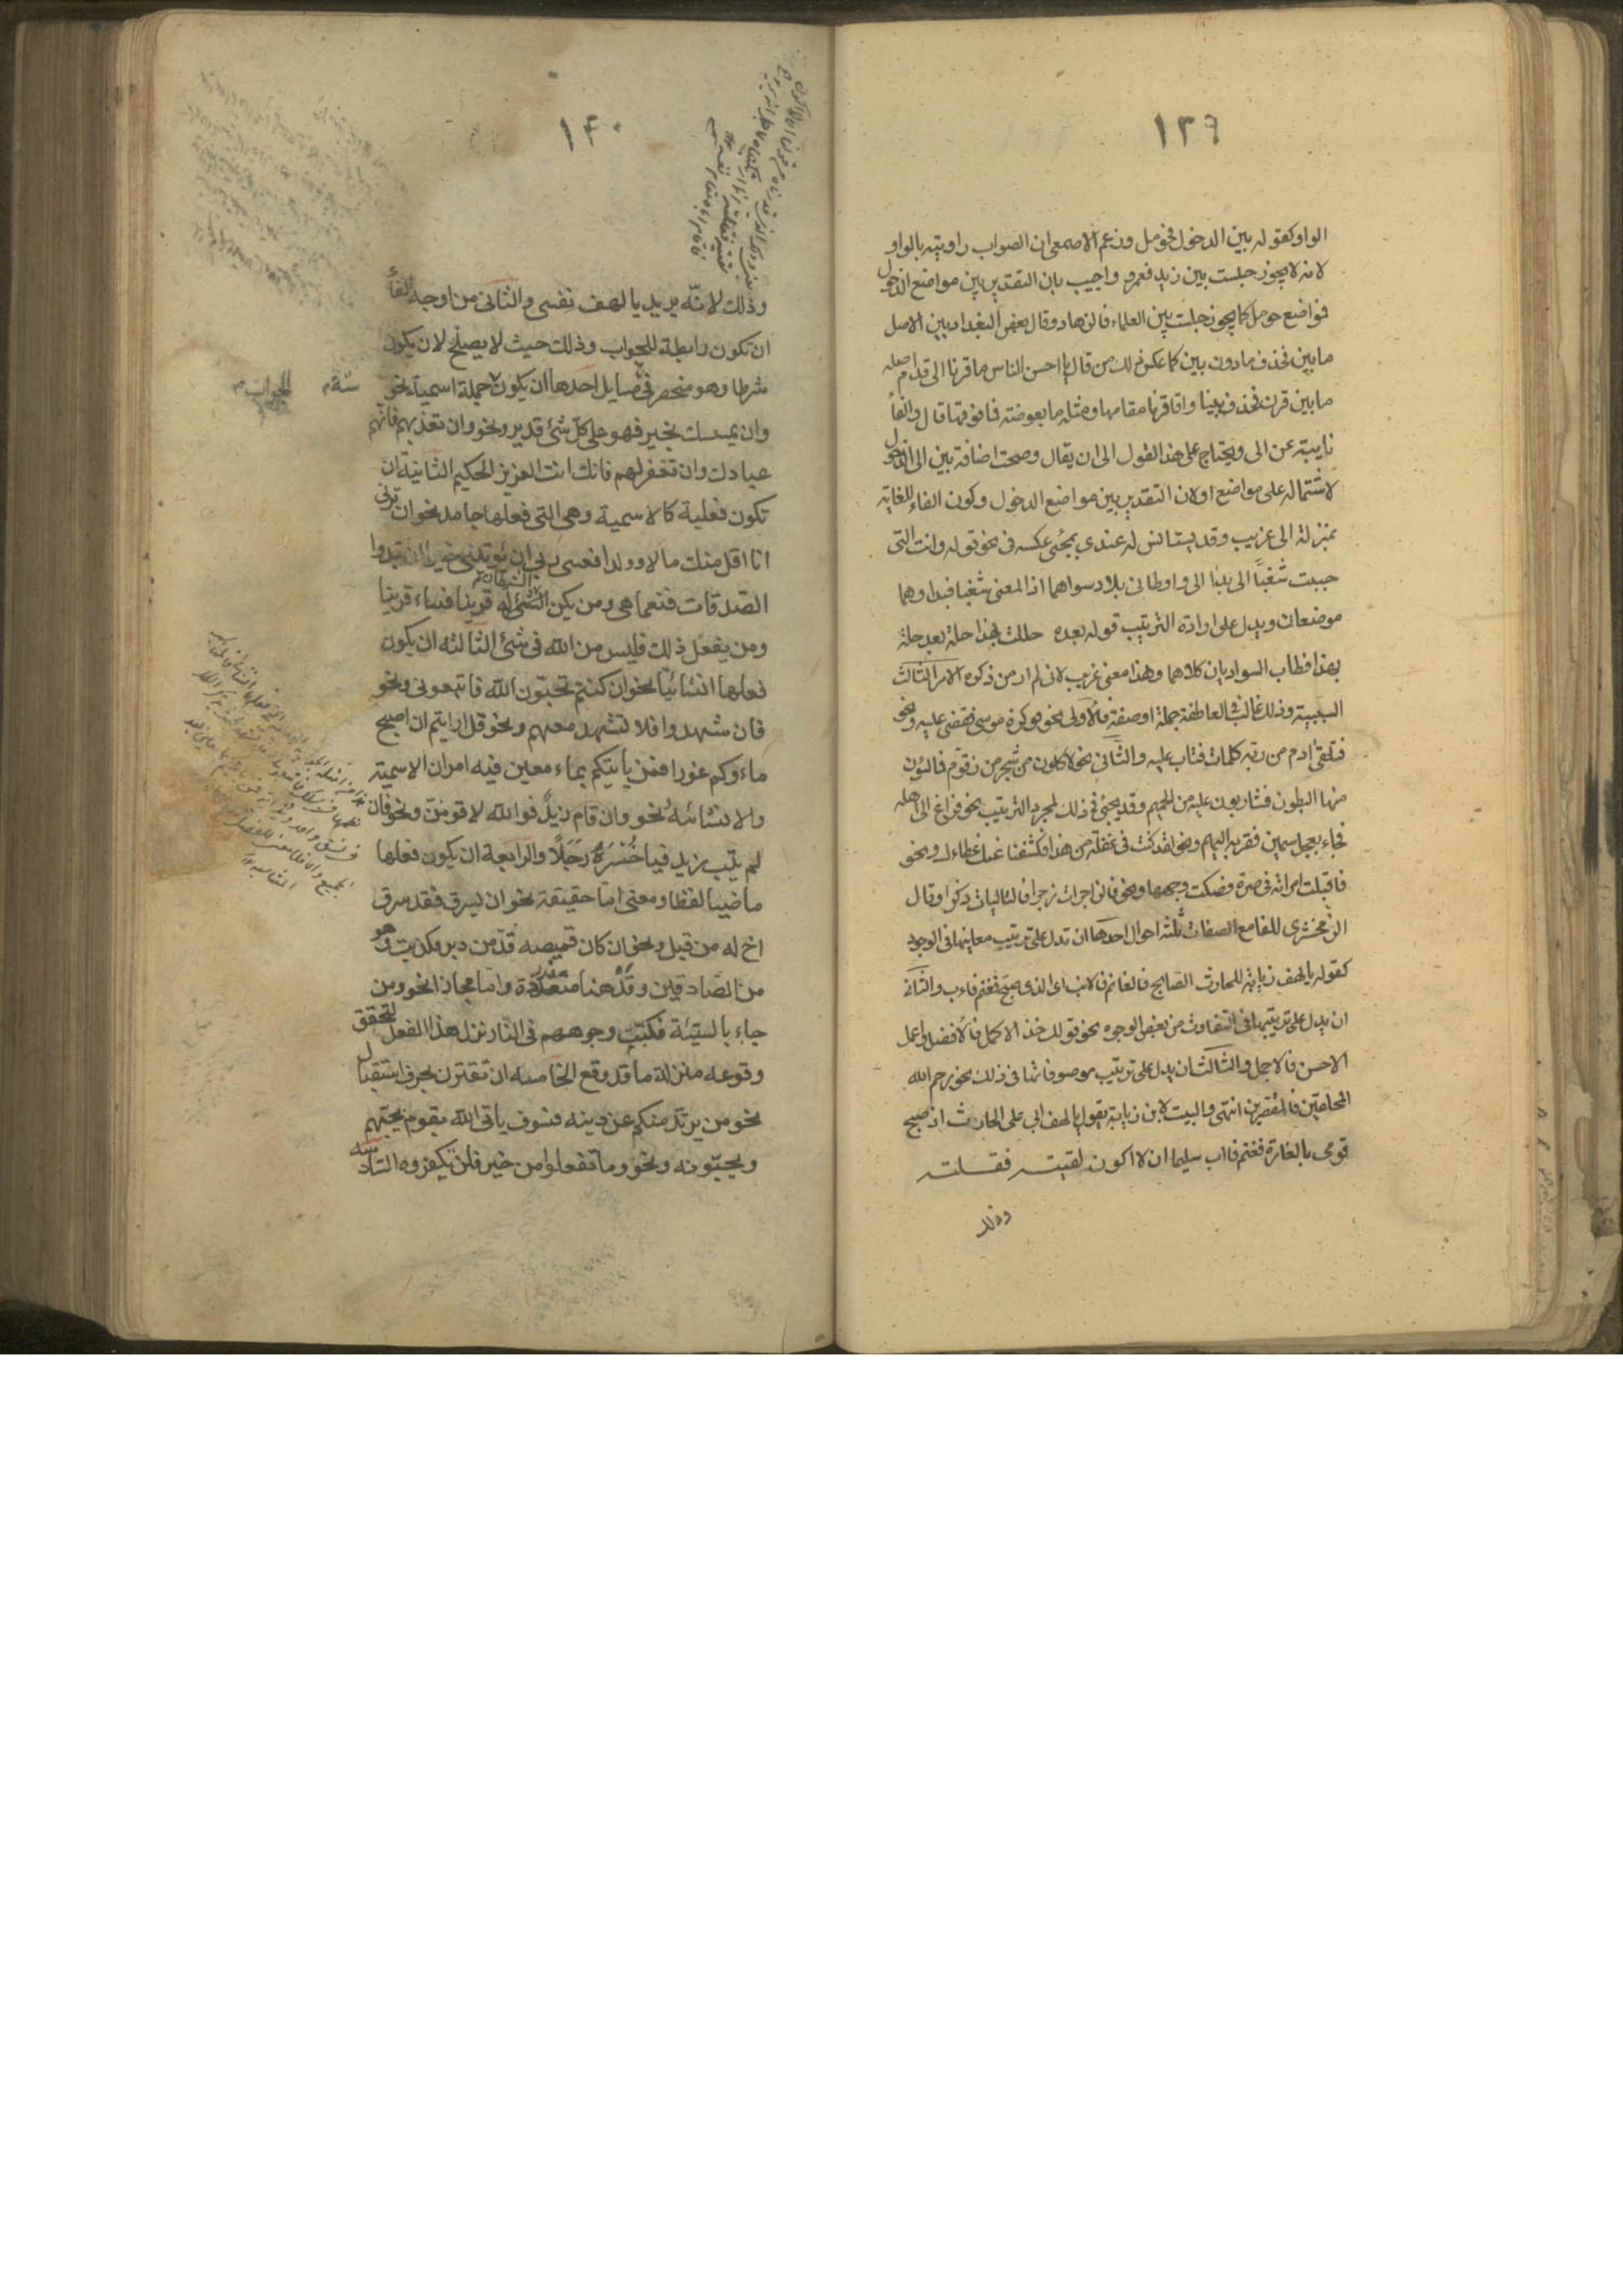 ١٣٩
الواو كقوله بين الدخول فحومل وزعم الاصمعى ان الصواب روايته بالواو
لانه لا يجوز جلست بين زيد فعمرو واجيب بان التقدير بين مواضع الدخول
فمواضع حومل كما يجوز جلست بين العلماء فالزهاد وقال بعض البغداديين الاصل
ما بين فحذف ما دون بين كما عكس ذلك من قال يا احسن الناس ما قرنا الى قدم اصله
ما بين قرن فحذف بين واقام قرنا مقامها ومثله ما بعوضة فما فوقها قال والفاء
نايبة عن الى ويحتاج على هذا القول الى ان يقال وصحت اضافة بين الى الدخول
لاشتماله على مواضع او لان التقدير بين مواضع الدخول وكون الفاء للغاية
بمنزلة الى غريب وقد يستانس له عندى بمجئ عكسه فى نحو قوله وانت التى
حببت شغبا الى بدا الى واوطانى بلاد سواهما اذ المعنى شغبا فبدا وهما
موضعان ويدل على ارادة الترتيب قوله بعده حللت بهذا حلة بعد حلة
بهذا فطاب السواديان كلاهما وهذا معنى غريب لانى لم ار من ذكره الامر الثالث
السببية وذلك غالب فى العاطفة جملة او صفة فالاولى نحو فوكزه موسى فقضى عليه ونحو
فتلقى ادم من ربه كلمات فتاب عليه والثانى نحو لاكلون من شجر من زقوم فمالئون
منها البطون فشاربون عليه من الحميم وقد يجئ فى ذلك لمجرد الترتيب نحو فراغ الى اهله
فجاء بعجل سمين فقربه اليهم ونحو لقد كنت فى غفلة من هذا فكشفنا عنك غطاءك ونحو
فاقبلت امراته فى صرة فصكت وجهها ونحو فالزاجرات زجرا فالتاليات ذكرا وقال
الزمخشرى للفا مع الصفات ثلثة احوال احدها ان تدل على ترتيب معانيها فى الوجود
كقوله يا لهف زيابة للحارث الصابح فالغانم فالايب اى الذى صبح فغنم فاب والثانى
ان يدل على ترتيبها فى التفاوت من بعض الوجوه نحو قولك خذ الاكمل فالافضل واعمل
الاحسن فالاجمل والثالث ان يدل على ترتيب موصوفاتها فى ذلك نحو رحم الله
المحلقين فالمقصرين انتهى والبيت لابن زيابة يقول يا لهف ابى على الحارث اذ صبح
قومى بالغارة فغنم فاب سليما ان لا اكون لقيته فقتلته
وذلك
١٤٠
وذلك لانّه يريد يا لهف نفسى والثانى من اوجه الفاء
ان تكون رابطة للجواب وذلك حيث لا يصلح لان يكون
شرطا وهو منحصر فى مسايل احدها ان يكون جملة اسمية نحو
ستة
الجواب
وان يمسسك بخير فهو على كلّ شئ قدير ونحو ان تعذبهم فانهم
عبادك وان تغفر لهم فانك انت العزيز الحكيم الثانية ان
تكون فعلية كالاسمية وهى التى فعلها جامد نحو ان ترنى
انا اقل منك مالا وولدا فعسى ربى ان يؤتينى خيرا ان تبدوا
الصّدقات فنعما هى ومن يكن الشيطان له قرينا فساء قرينا
ومن يفعل ذلك فليس من الله فى شئ الثالثه ان يكون
فعلها انشائيّا نحو ان كنتم تحبّون اللّه فاتبعونى ونحو
فان شهدوا فلا تشهد معهم ونحو قل ارايتم ان اصبح
ماءوكم غورا فمن يأتيكم بماء معين فيه امران الاسمية
والانشائية نحو وان قام زيدٌ فوالله لاقومنّ ونحو فان
لم يتب زيد فيا خُسْرَهُ رَجُلًا والرابعة ان يكون فعلها
ماضيا لفظا ومعنى امّا حقيقة نحو ان يسرق فقد سرق
اخ له من قبل ونحو ان كان قميصه قدّ من دبر فكذبت وهو
من الصّادقين وقدْ هنا مقدرة وامّا مجازا نحو ومن
جاء بالسيّئة فكبّت وجوههم فى النّار نزل هذا الفعل لتحقق
وقوعه منزلة ما قد وقع الخامسه ان تقترن بحرف استقبال
نحو من يرتدّ منكم عن دينه فسوف يأتى اللّه بقوم يحبّهم
ويحبّونه ونحو وما تفعلوا من خير فلن تكفروه السّادسه